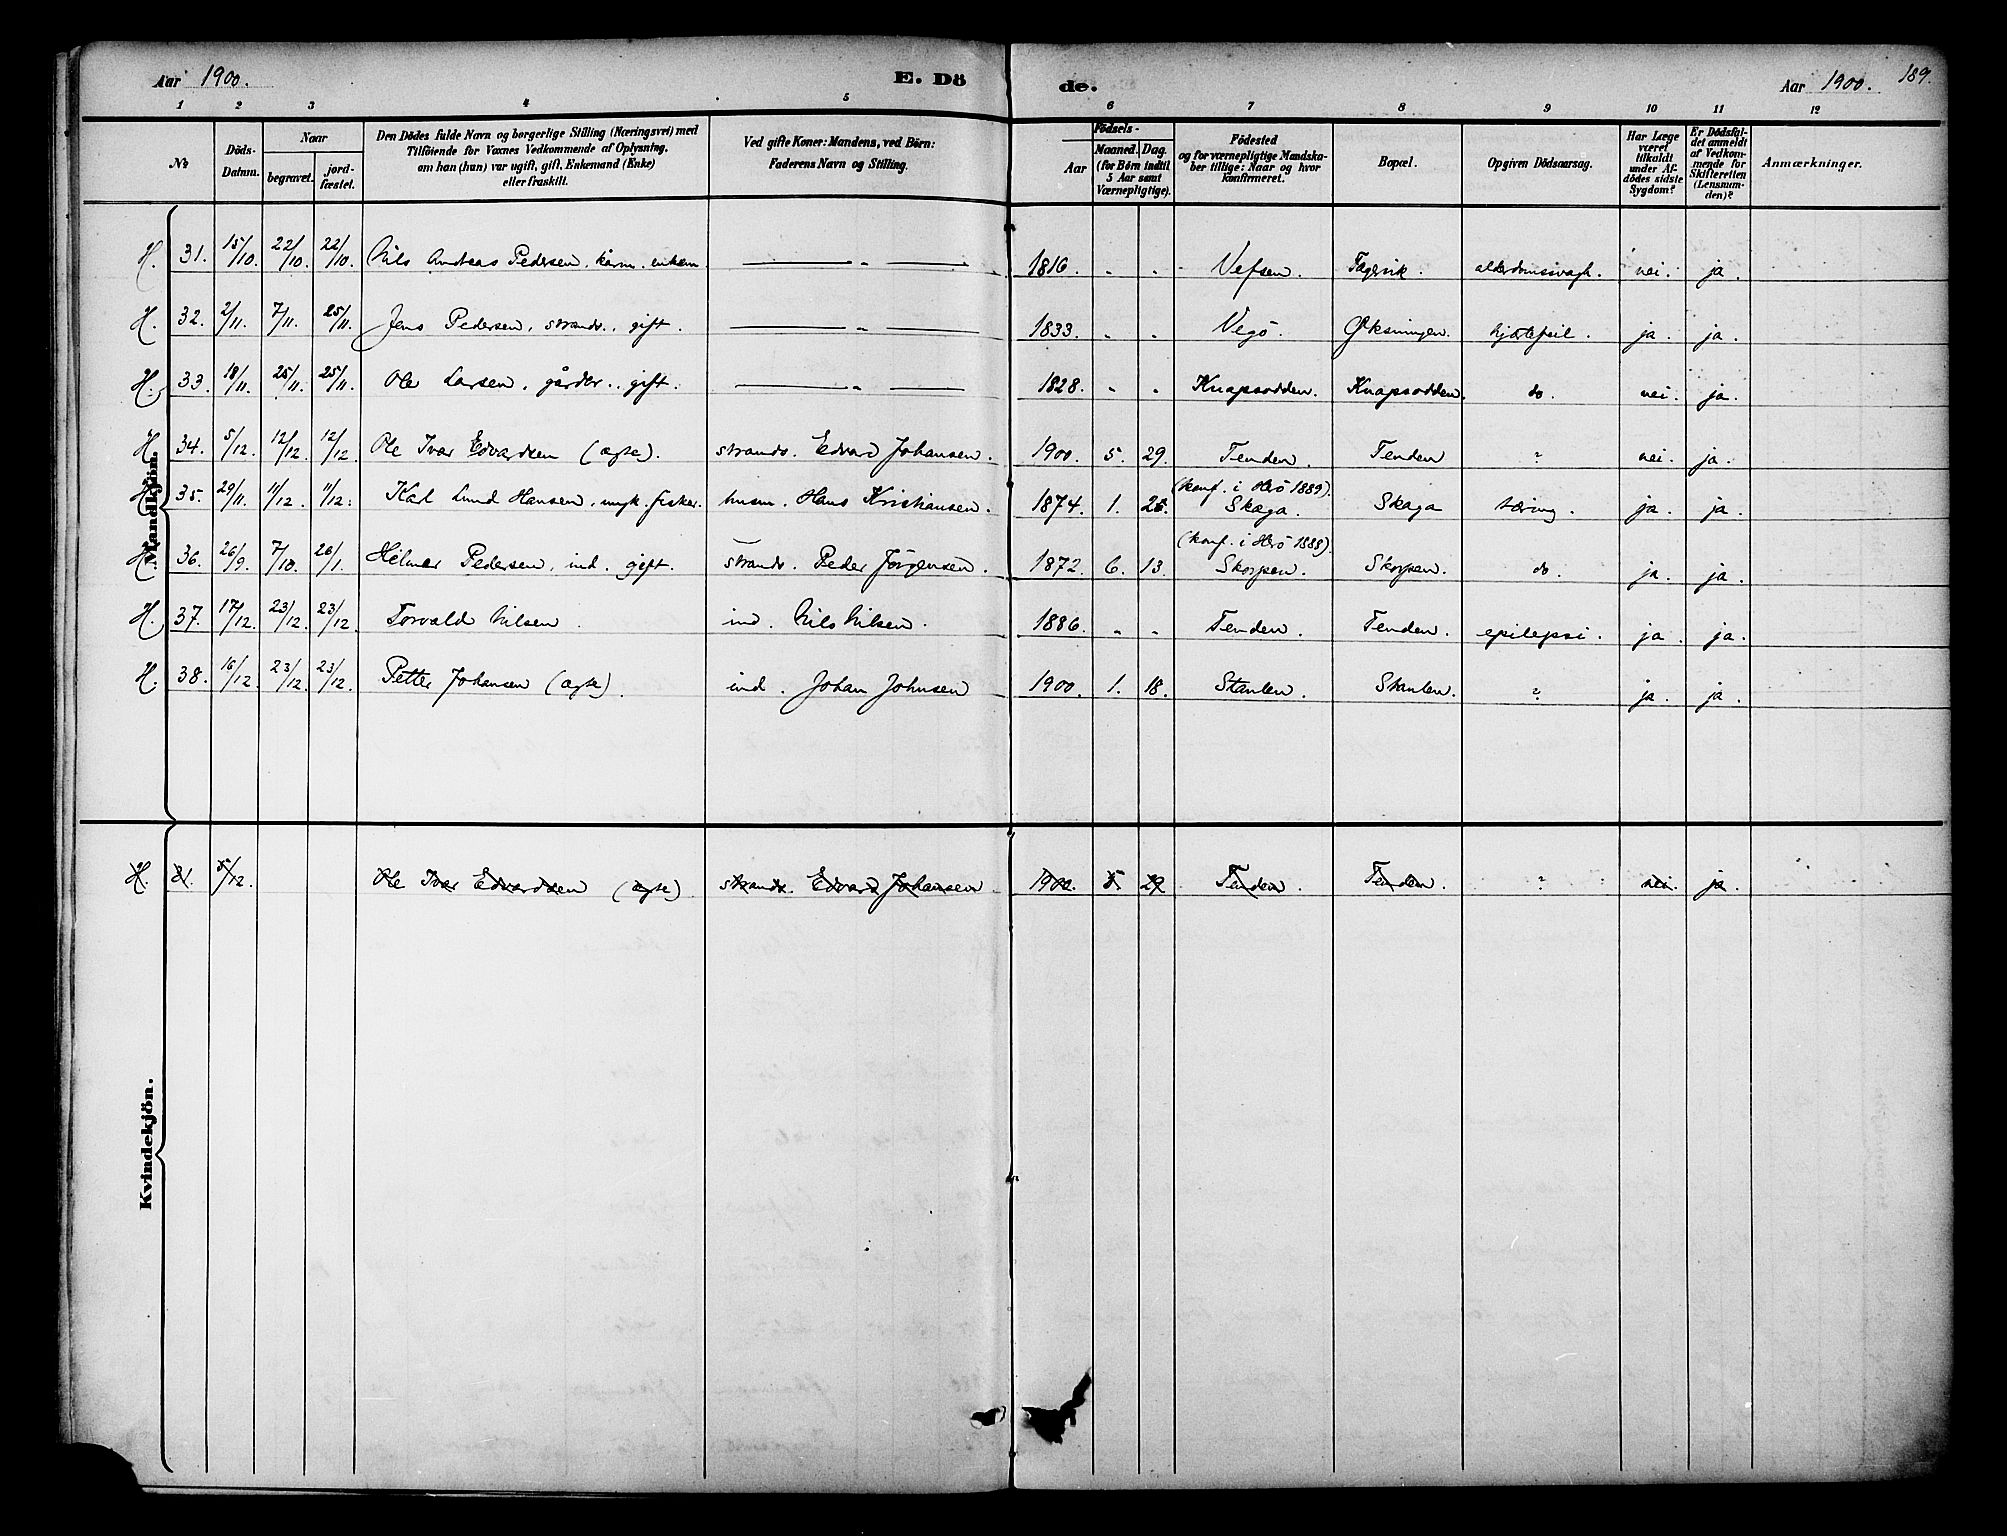 Aar 1900.
E. Dö
de.
Aar 1900.
189.
1 2 3 4 5 6 7 8 9 10 11 12
No
Döds-Datum.
Naar
begravet.
jord-fæstet.
Den Dödes fulde Navn og borgerlige Stilling (Næringsvei) med
Tilföiende for Voxnes Vedkommende af Oplysning,
om han (hun) var ugift, gift, Enkemand (Enke)
eller fraskilt.
Ved gifte Koner: Mandens, ved Börn:
Faderens Navn og Stilling.
Födsels-
Aar
Maaned. Dag.
(for Börn indtil
5 Aar samt
Værnepligtige).
Födested
og for værnepligtige Mandska-
ber tillige: Naar og hvor
konfirmeret.
Bopæl.
Opgiven Dödsaarsag.
Har Læge
været
tilkaldt
under Af-
dödes sidste
Sygdom?
Er Dödsfal-
det anmeldt
af Vedkom-
mende for
Skifteretten
(Lensman-
den)?
Anmærkninger.
Mandkjön.
H. 31. 15/10. 22/10. 22/10. Nils Andreas Pedersen, kårm. enkem. — „ — 1816. „ „ Vefsen. Tagvik. alderdomssvagh. nei. ja.
H. 32. 2/11. 7/11. 25/11. Jens Pedersen, strands., gift. — „ — 1833. „ „ Vegö. Öksningen. hjertefeil. ja. ja.
H. 33. 18/11. 25/11. 25/11. Ole Larsen, gårdbr., gift. — „ — 1828. „ „ Knapsodden. Knapsodden. do. nei. ja.
H. 34. 5/12. 12/12. 12/12. Ole Ivar Edvardsen (ægte). strands. Edvard Johansen. 1900. 5. 29. Tenden. Tenden ? nei. ja.
H. 35. 29/11. 11/12. 11/12. Karl Lund Hansen, ungk. fisker. husm. Hans Kristiansen. 1874. 1. 28. (konf. i Herö 1889). Skaga. Skaga tæring. ja. ja.
H. 36. 26/9. 7/10. 26/1. Hilmar Pedersen, ind. gift. strands. Peder Jörgensen. 1872. 6. 13. (konf. i Herö 1888). Skorpen. Skorpen. do. ja. ja.
H. 37. 17/12. 23/12. 23/12. Torvald Nilsen. ind. Nils Nilsen. 1886. „ „ Tenden. Tenden. epilepsi. ja. ja.
H. 38. 16/12. 23/12. 23/12. Petter Johansen (ægte). ind. Johan Johnsen 1900. 1. 18. Stanlen. Stanlen. ? ja. ja.
Kvindekjön.
H. 31. 5/12. Ole Ivar Edvardsen (ægte) strands. Edvard Johansen 1900. 5. 29 Tenden. Tenden. ? nei. ja.